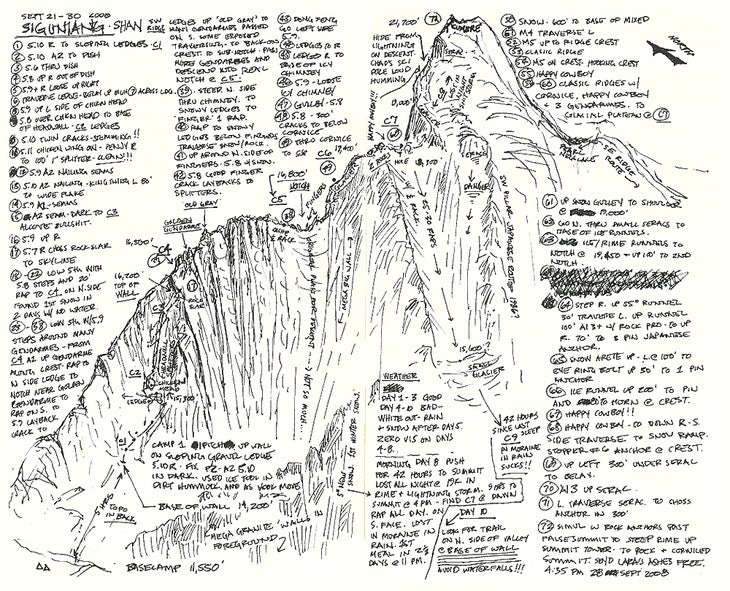 SEPT 21-30 2008
SIGUNIANG-SHAN SW RIDGE
① 5.10 R TO SLOPING LEDGES C1
② 5.10 A2 TO DISH
③ 5.6 THRU DISH
④ 5.8 UP R OUT OF DISH
⑤ 5.9+ R LOOSE UP RIGHT
⑦ 5.9 UP L SIDE OF CHICKEN HEAD
⑧ 5.8 OVER CHICKEN HEAD TO BASE
OF HEADWALL C2 LEDGES
⑨ 5.10 TWIN CRACKS-STEMMING!!
⑩ 5.11 CHICKEN WING ON-
TO 100' 1" SPLITTER-CLEAN!!!
5.9 A2 NAILING SEAMS
⑬ 5.10 A2 NAILING-
TO WIDE FLAKE
⑭ 5.9 A2-SEAMS
⑮ A2 SEAM-DARK TO C3
ALCOVE BULLSHIT.
⑯ 5.9 UP R
⑰ 5.7 R CROSS ROCK SCAR
TO SKYLINE
⑱-㉒ LOW 5TH WITH
5.8 STEPS AND 20'
RAP TO C4 ON N. SIDE
FOUND 1ST SNOW IN
2 DAYS W/ NO WATER.
LOW 5TH W/5.9
STEPS AROUND MANY
GENDARMES-FROM
C4 A2 UP GENDARME
ALONG CREST-RAP TO
N SIDE LEDGE TO
NOTCH NEAR GOLDEN
GENDARME TO
RAP ON S. TO
5.9 LAYBACK
CRACK TO
LEDGES UP 'OLD GRAY' TO
MANY GENDARMES PASSED
ON S. SOME EXPOSED
TRAVERSING-TO BACK ON
CREST TO SUB-NOTCH-PASS
MORE GENDARMES AND
DESCEND INTO REAL
NOTCH @ C5.
㊴ STEEP N. SIDE
THRU CHIMNEY. TO
SNOWY LEDGES TO
'FINGER' 1 RAP.
㊵ RAP TO SNOWY
LEDGES BELOW FINGERS
TRAVERSE SNOW/ROCK.
㊶ UP AROUND N. SIDE OF
FINGERS-5.8 W/SNOW.
㊷ 5.8 GOOD FINGER
CRACK LAYBACKS TO
SPLITTERS.
㊸ DONG FENG
GO LEFT WIDE
5.9.
㊹ LEDGES TO R
㊺ LEDGES R TO
BASE OF ICY
CHIMNEY
㊻ 5.9-LOOSE
ICY CHIMNEY
㊼ GULLEY-5.8
㊽ 5.8-300'
CRACKS TO BELOW
CORNICE
㊾ THRU CORNICE
TO C6 17,400'
㊿ SNOW-600' TO BASE OF MIXED
M4 TRAVERSE L
M5 UP TO RIDGE CREST
CLASSIC RIDGE
M5 ON CREST, HOOKING CREST
HAPPY COWBOY
CLASSIC RIDGES W/
CORNICE, HAPPY COWBOY
+ 3 GENDARMES. TO
GLACIAL PLATEAU @ C7
NORTH
21,700'
72
HIDE FROM
LIGHTNING
ON DESCENT
CHAOS SKI
POLE LOUD
HUMMING
SERAC
DANGER
C8
HAPPY COWBOY!!!
C7
PEARL NECKLACE
SE RIDGE ROUTE
SW PILLAR JAPANESE ROUTE
16,800'
NOTCH
C5
FINGERS
OLD GRAY
GOLDEN GENDARME
16,500'
C4
16,200
TOP OF
WALL
C3
ROCK SCAR
HEADWALL
C2
LEDGES
CHICKEN HEAD
15,300
MEGA BIG WALL
NOT SO MUCH...
15,600'
SMALL
GLACIER
C1
CAMP 1 1 PITCH UP WALL
ON SLOPING GRAVEL LEDGE
5.10R. FIX P2-A2 5.10
IN DARK. USED ICE TOOL IN
DIRT HUMMOCK, AND AS HOOK MOVE
BASE OF WALL 14,200'
TOPO
IN BACK
MEGA GRANITE WALLS IN
FOREGROUND
BASECAMP 11,550'
WEATHER
DAY 1-3 GOOD
DAY 4-10 BAD-
WHITE OUT-RAIN
+ SNOW AFTER DAY 5.
ZERO VIS ON DAYS
4-8..
MORNING DAY 8 PUSH
FOR 42 HOURS TO SUMMIT
LOST ALL NIGHT @ 19K IN
RIME + LIGHTNING STORM.
SUMMIT @ 4 PM-FIND C7 @ DAWN
RAP ALL DAY. ON
S. FACE. LOST
IN MORAINE IN
RAIN. 1ST
MEAL IN 2½
DAYS @ 11 PM.
DAY 10
LOOK FOR TRAIL
ON N. SIDE OF VALLEY
@ BASE OF WALL
AVOID WATERFALLS!!!
42 HOURS
SINCE LAST
SLEEP
C9
IN MORAINE
IN RAIN
SUCKS!!
61 UP SNOW GULLEY TO SHOULDER
@ 19,000'
62 GO N. THRU SMALL SERACS TO
BASE OF ICE RUNNELS.
63 ICE/RIME RUNNELS TO
NOTCH @ 19,450 + UP 10' TO 2ND
NOTCH
64 STEP R. UP 55° RUNNEL
30' TRAVERSE L. UP RUNNEL
100' AI3+ W/ ROCK PRO-GO UP
R. 70' TO 3 PIN JAPANESE
ANCHOR.
65 SNOW ARETE UP-L @ 100' TO
EYE RING BOLT UP 50' TO 1 PIN
ANCHOR
66 ICE RUNNEL UP 200' TO PIN
AND TO HORN @ CREST.
67 HAPPY COWBOY!!
68 HAPPY COWBOY-GO DOWN R.S.
SIDE TRAVERSE TO SNOW RAMP.
STOPPER #6 ANCHOR @ CREST.
69 UP LEFT 300' UNDER SERAC
TO BELAY.
70 AI3 UP SERAC.
71 L TRAVERSE SERAC TO CHOSS
ANCHOR IN 300'
72 SIMUL W ROCK ANCHORS PAST
FALSE SUMMIT TO STEEP RIME UP
SUMMIT TOWER. TO ROCK + CORNICED
SUMMIT. SEND LARA'S ASHES FREE.
4:35 PM 28 SEPT 2008